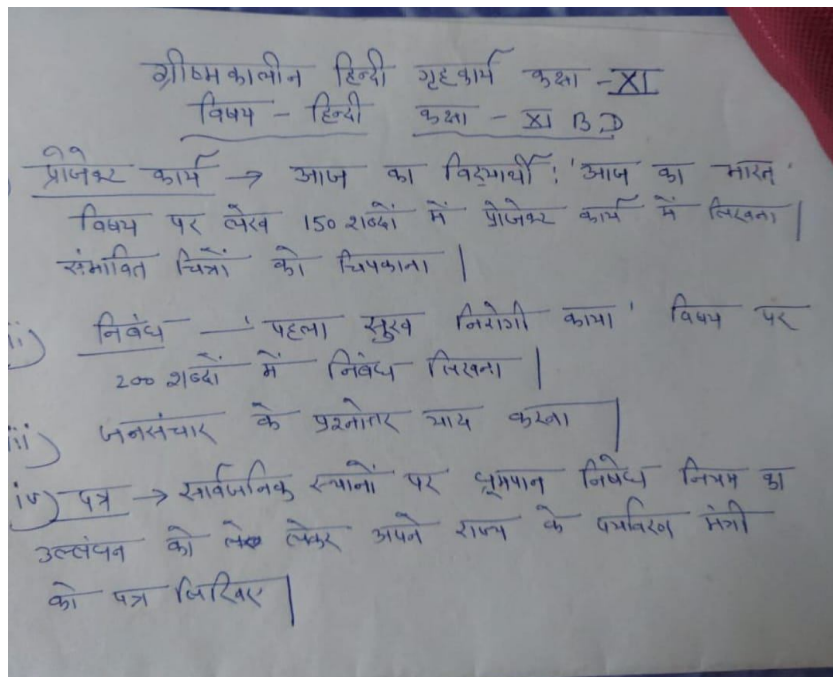 ग्रीष्मकालीन हिन्दी गृहकार्य कक्षा - XI
विषय - हिन्दी कक्षा - XI B.D
प्रोजेक्ट कार्य → आज का विद्यार्थी : 'आज का भारत'
विषय पर लेख 150 शब्दों में प्रोजेक्ट कार्य में लिखना |
संभावित चित्रों को चिपकाना |
ii) निबंध — 'पहला सुख निरोगी काया' विषय पर
200 शब्दों में निबंध लिखना |
iii) जनसंचार के प्रश्नोतर याद करना |
iv) पत्र → सार्वजनिक स्थानों पर धूम्रपान निषेध नियम का
उल्लंघन को लेकर अपने राज्य के पर्यावरण मंत्री
को पत्र लिखिए |